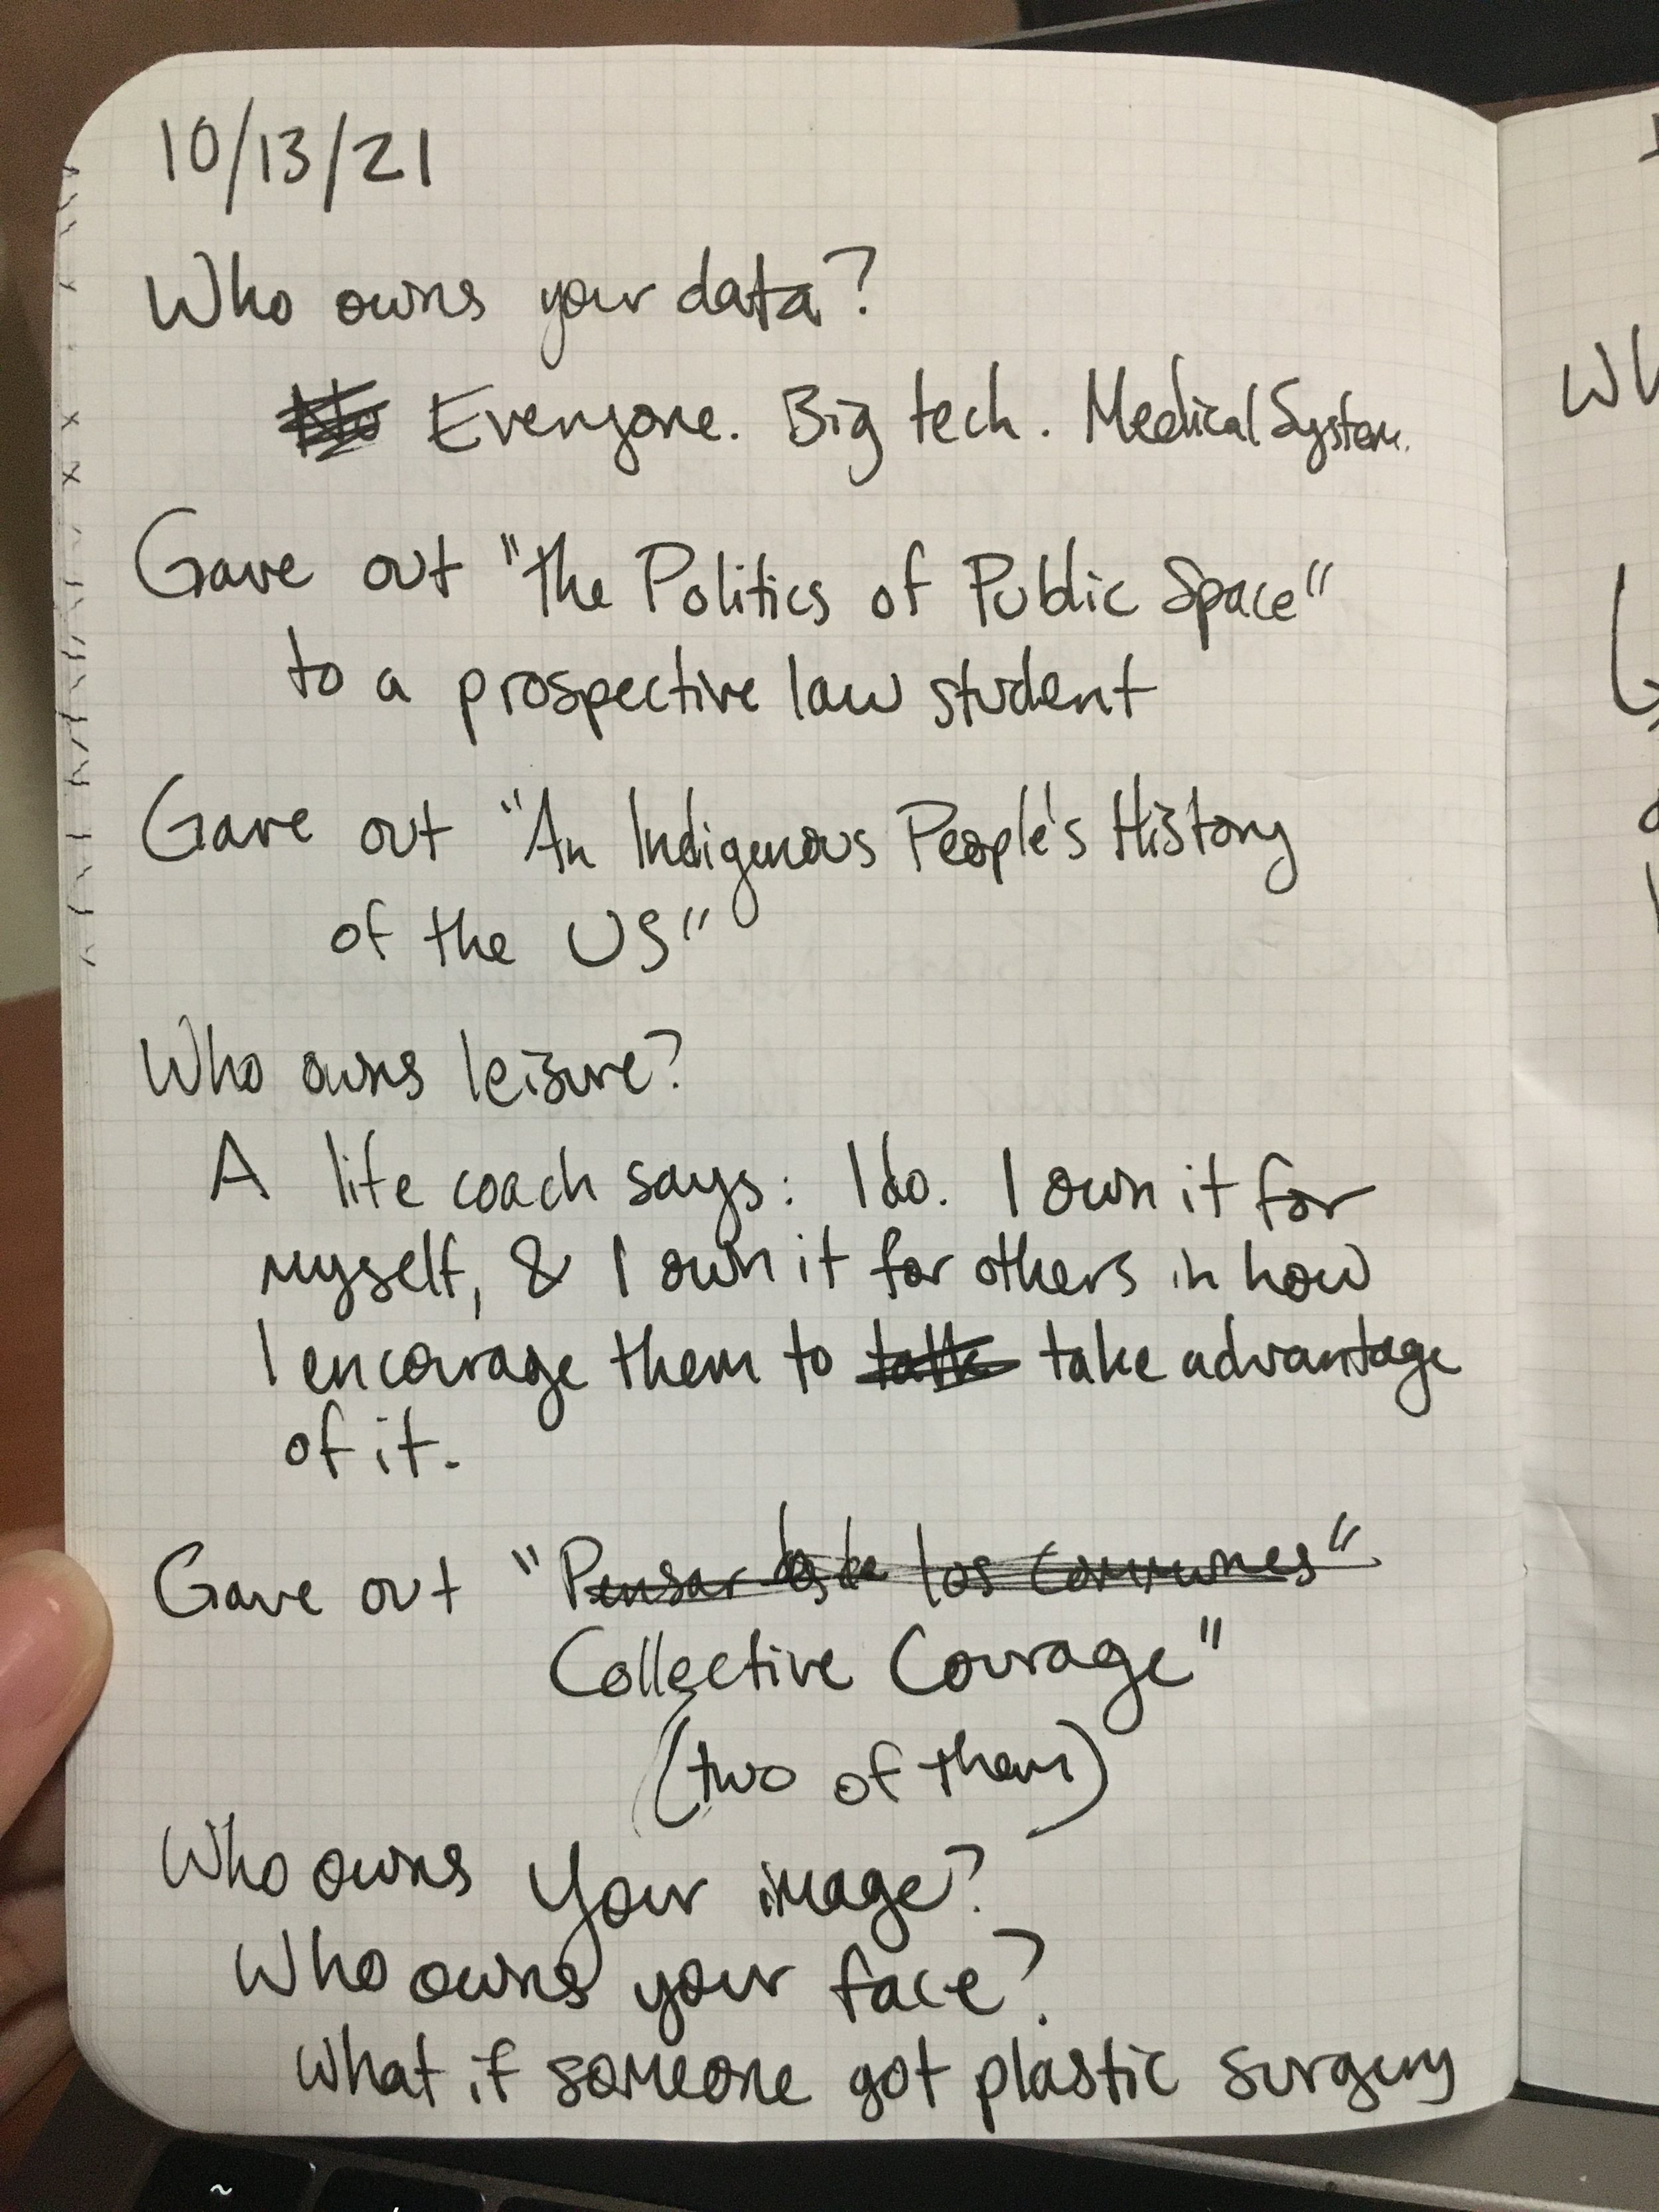 10/13/21
Who owns your data?
No Everyone. Big tech. Medical System.
Gave out "the Politics of Public Space"
to a prospective law student
Gave out "An Indigenous People's History
of the US"
Who owns leisure?
A life coach says: I do. I own it for
myself, & I own it for others in how
I encourage them to take advantage
of it.
Gave out "Pensar desde los Communes"
Collective Courage"
(two of them)
Who owns your image?
Who owns your face?
What if someone got plastic surgery
Wh